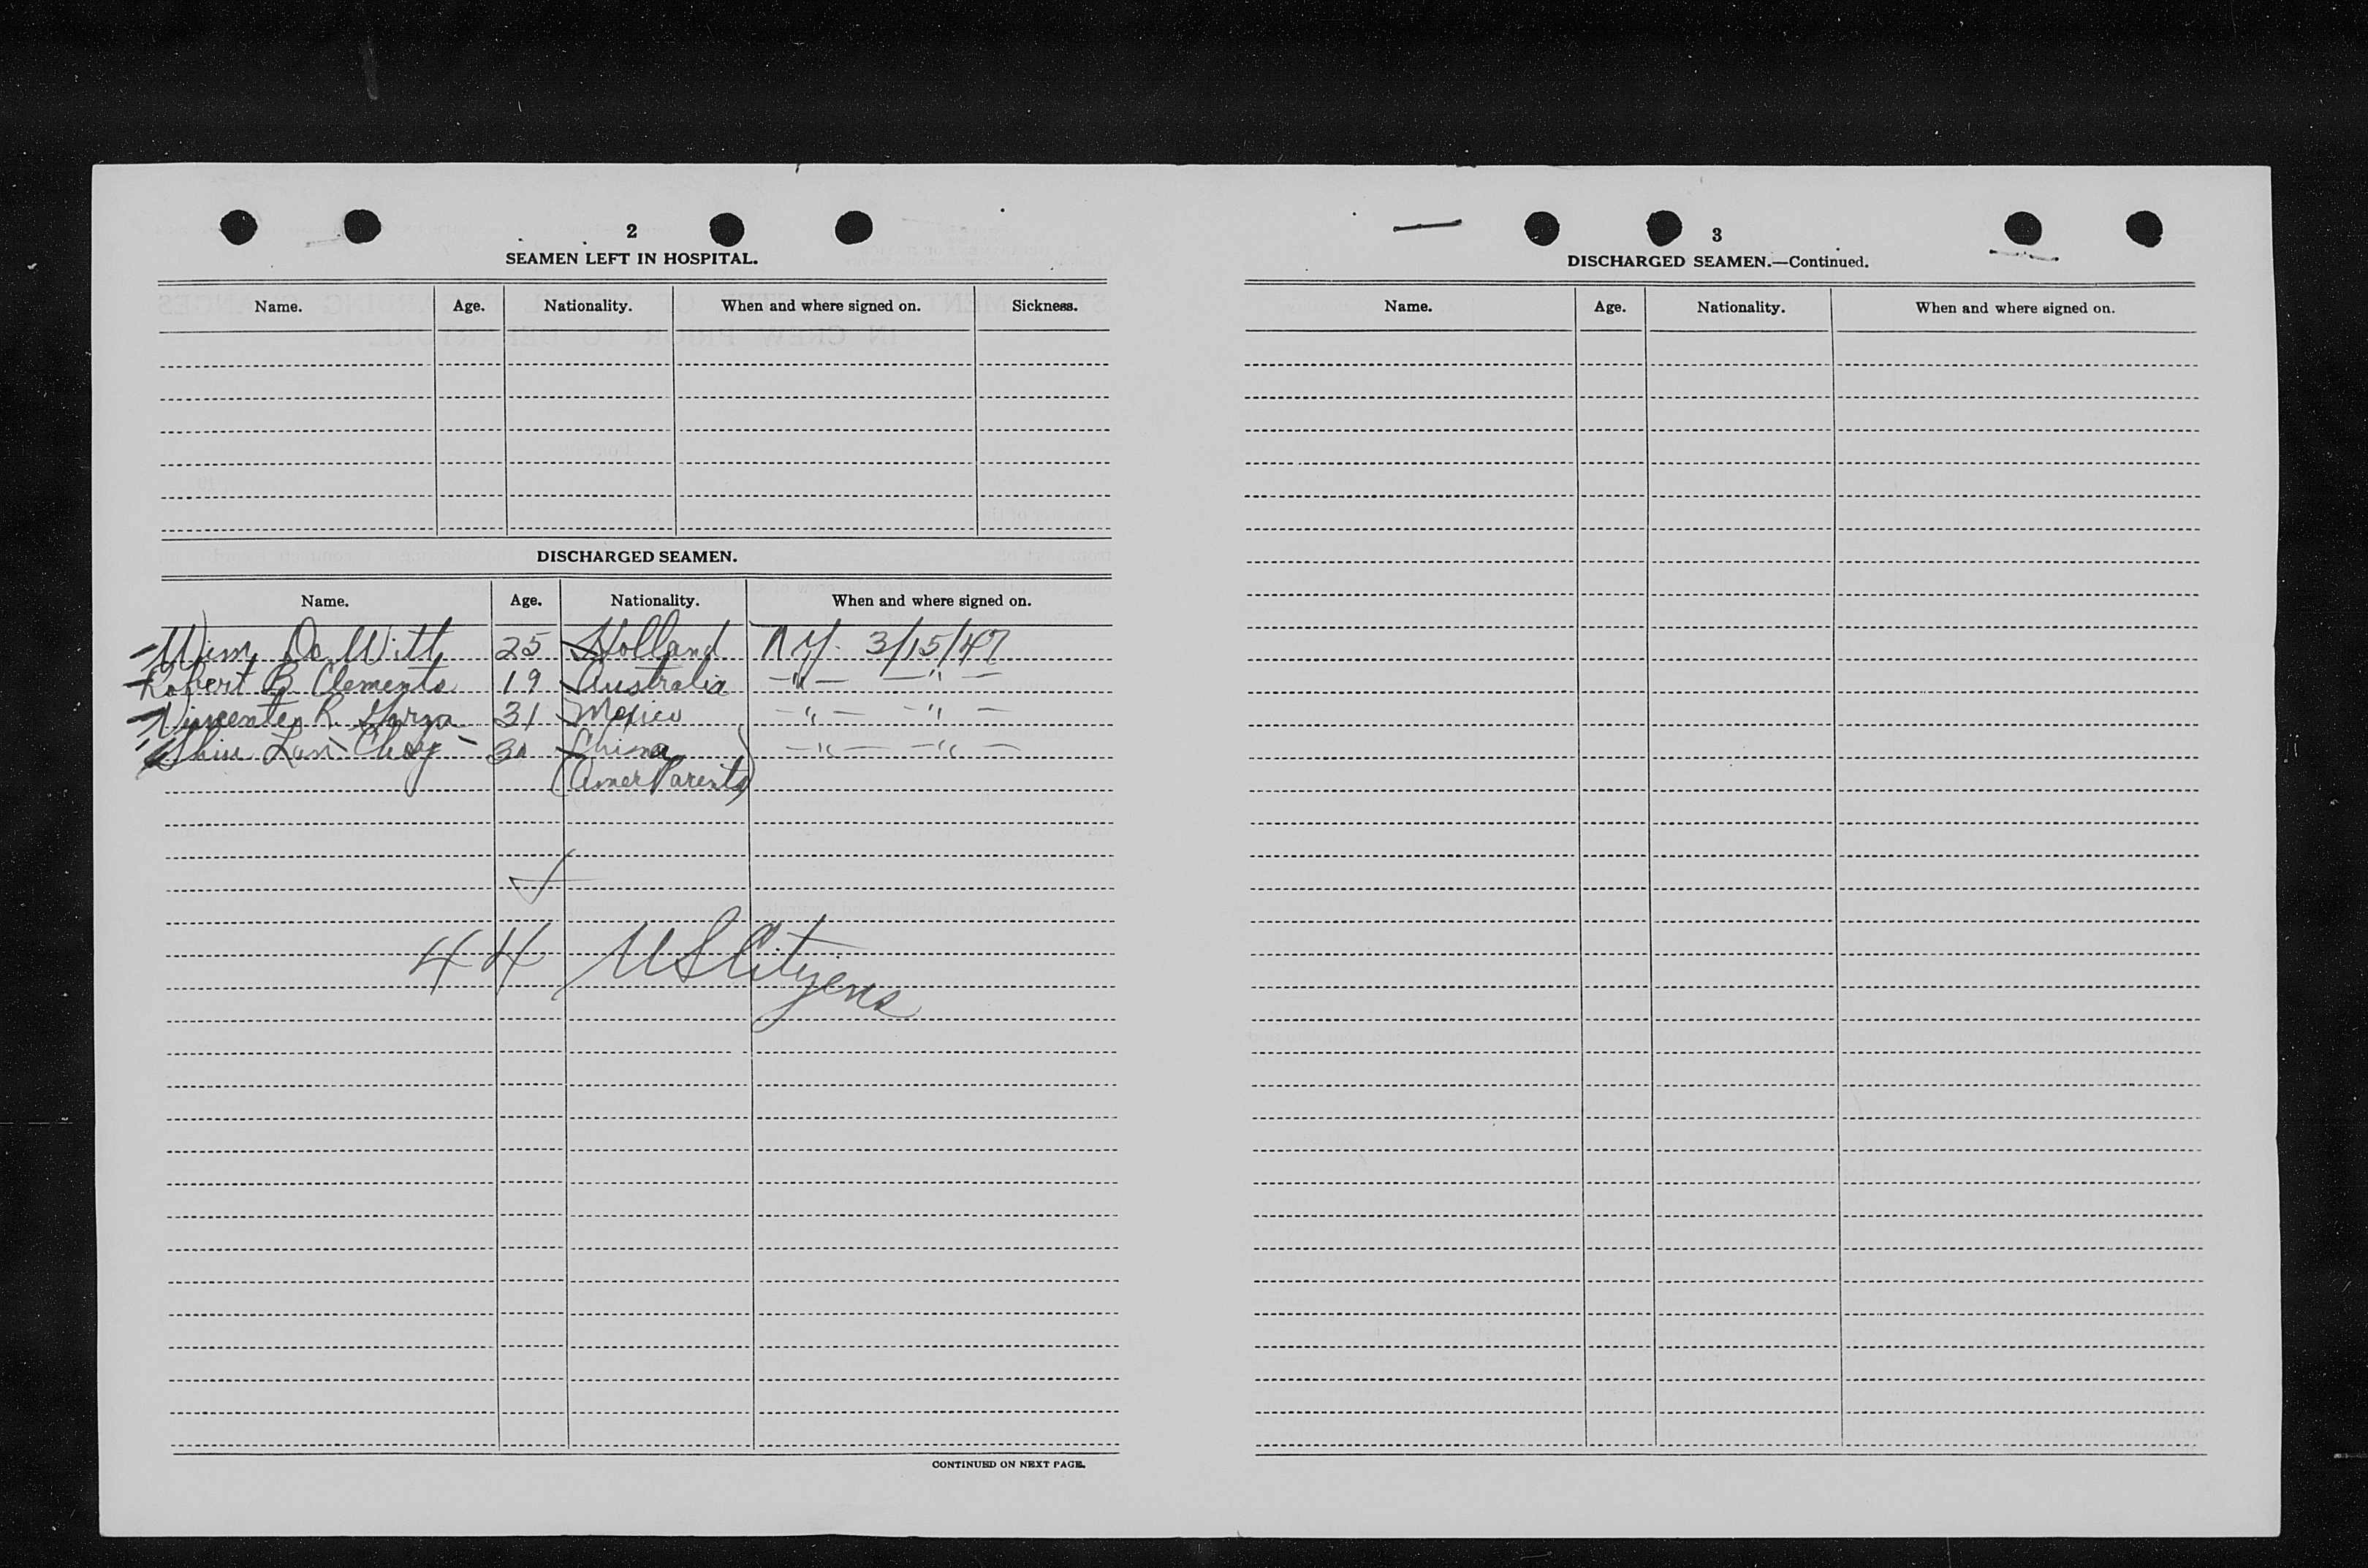 2
SEAMEN LEFT IN HOSPITAL.
Name. Age. Nationality. When and where signed on. Sickness.
DISCHARGED SEAMEN.
Name. Age. Nationality. When and where signed on.
Wim De Witt 25 Holland N.Y. 3/15/47
Robert B Clements 19 Australia —"— —"—
R. Garza 31 Mexico —"— —"—
Lan Choy 30 China —"— —"—
(Amer Parents)
44 US Citizens
CONTINUED ON NEXT PAGE.
3
DISCHARGED SEAMEN.—Continued.
Name. Age. Nationality. When and where signed on.